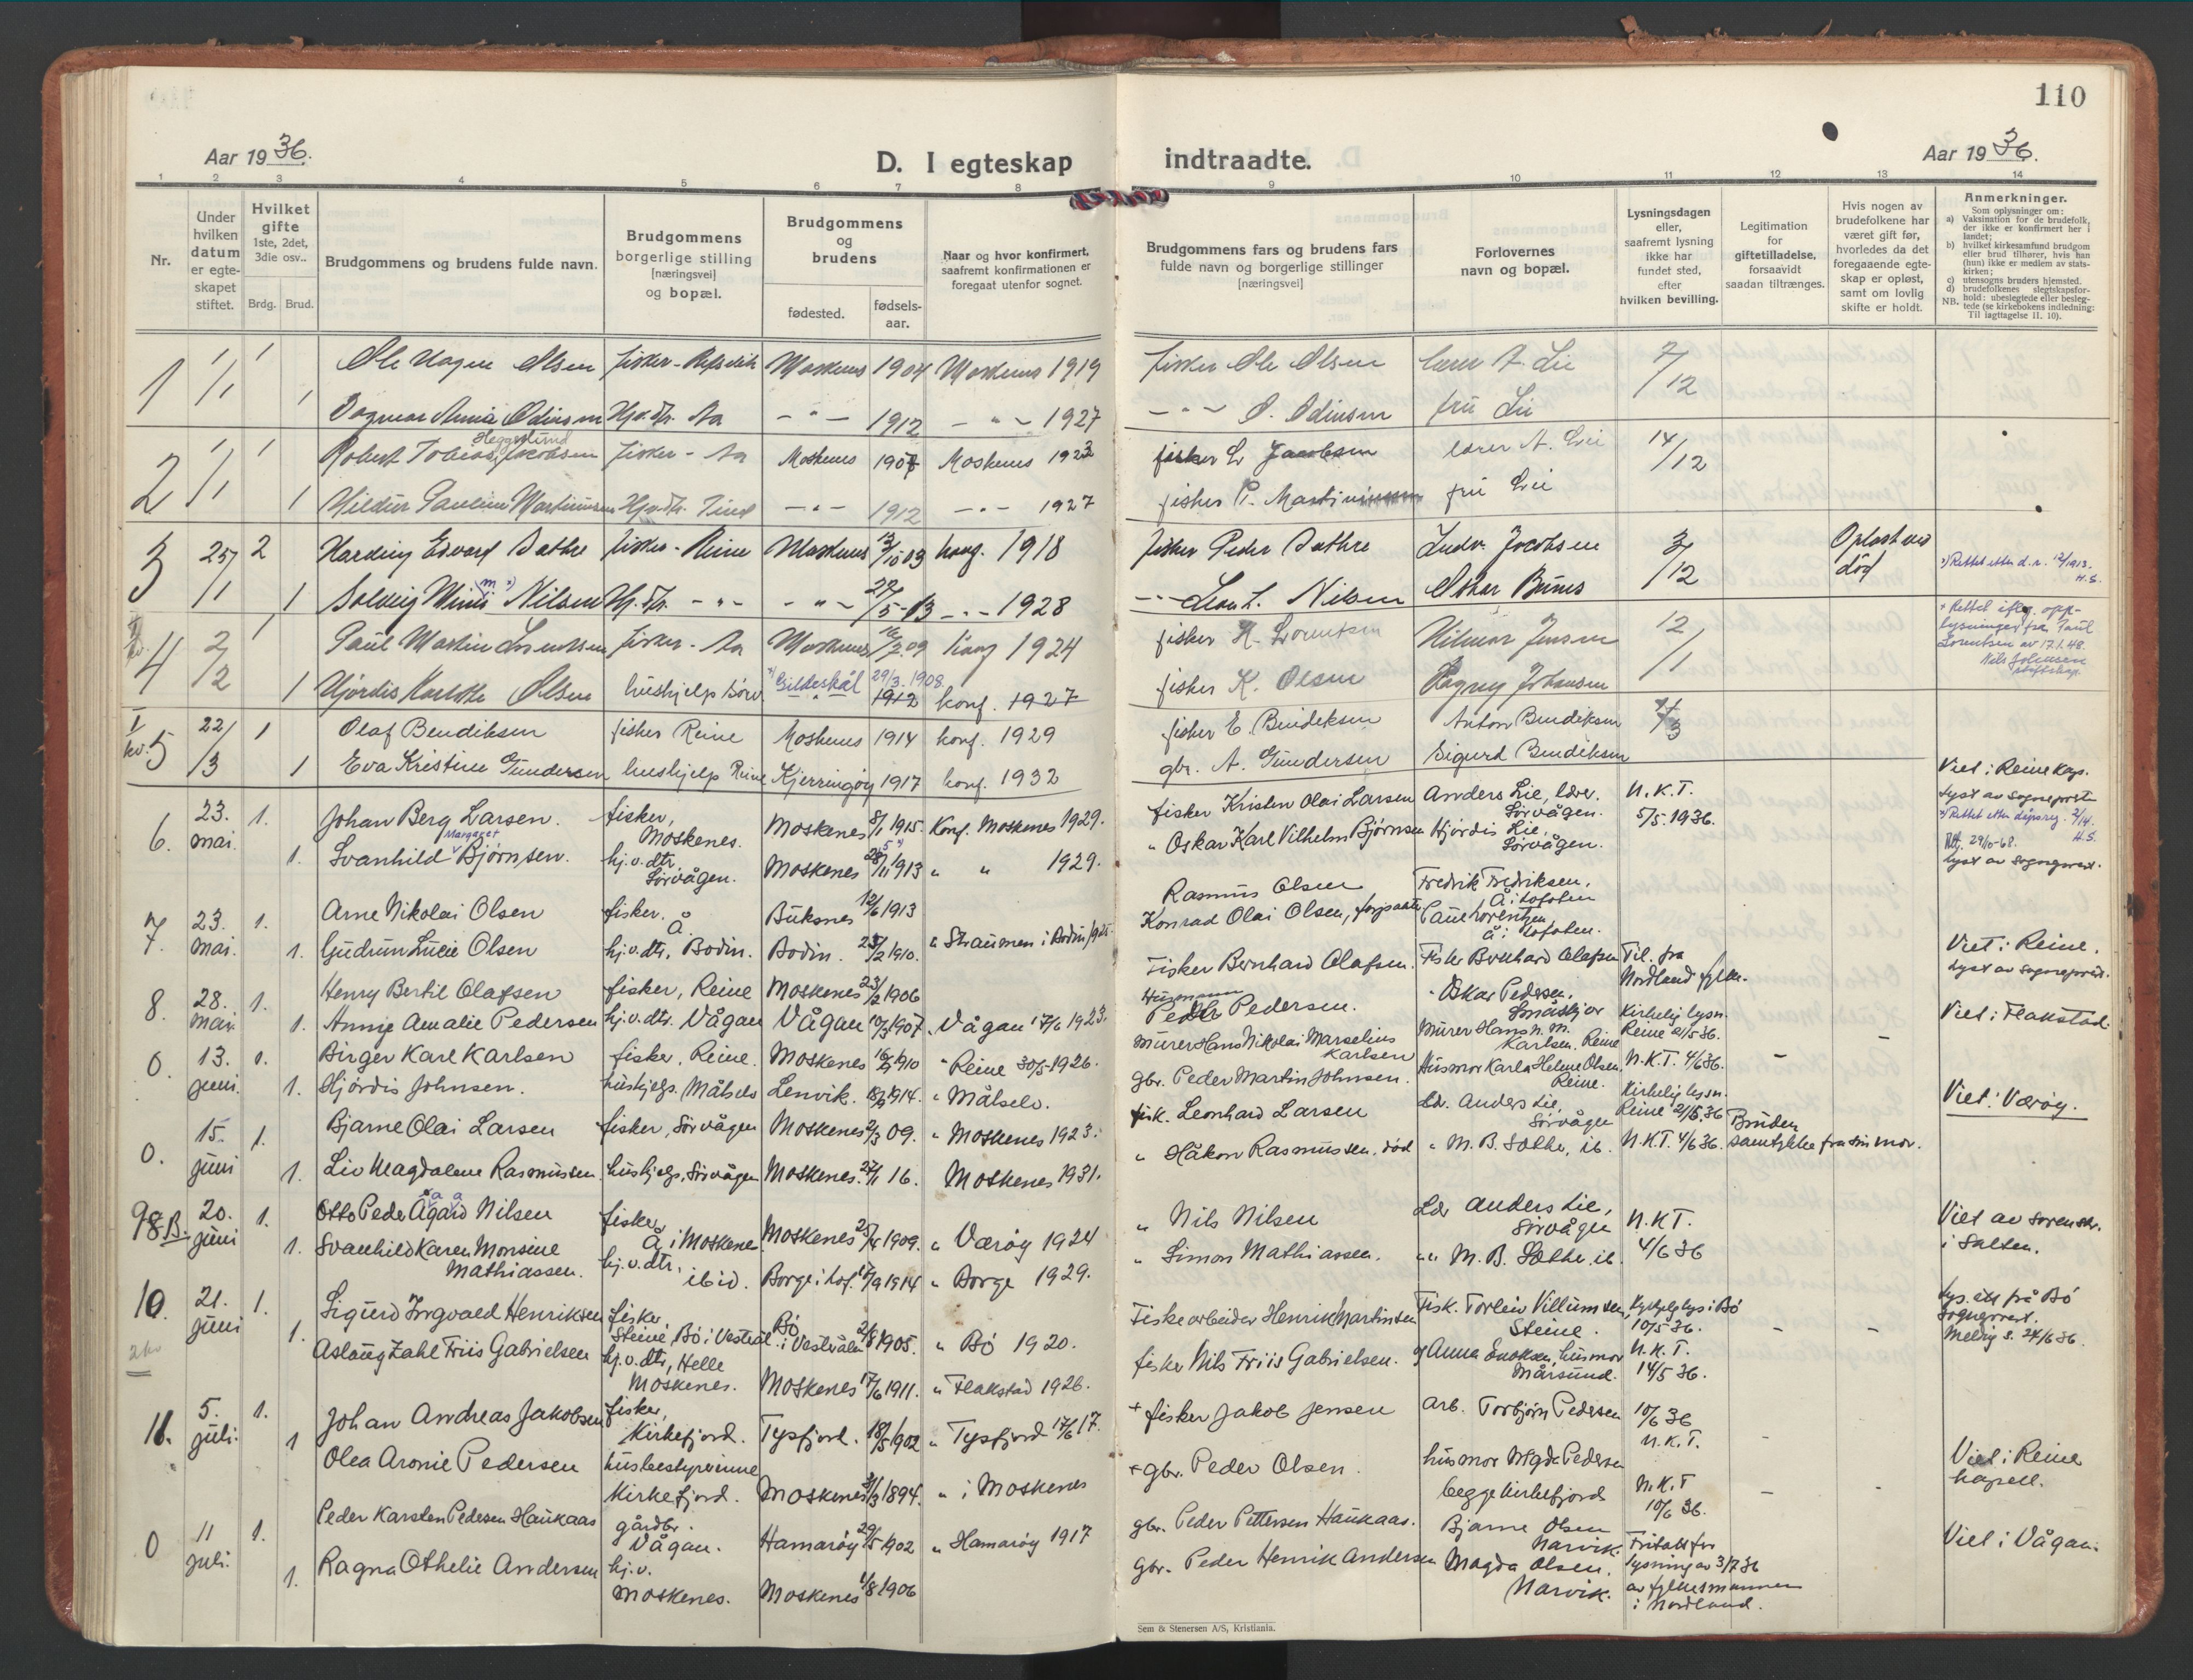 110
Aar 1936.
D. I egteskap indtraadte.
Aar 1936.
1 2 3 4 5 6 7 8 9 10 11 12 13 14
Nr.
Under hvilken datum er egteskapet stiftet.
Hvilket gifte 1ste, 2det, 3die osv..
Brdg. Brud.
Brudgommens og brudens fulde navn.
Brudgommens borgerlige stilling [næringsvei] og bopæl.
Brudgommens og brudens
fødested. fødselsaar.
Naar og hvor konfirmert, saafremt konfirmationen er foregaat utenfor sognet.
Brudgommens fars og brudens fars fulde navn og borgerlige stillinger [næringsvei]
Forlovernes navn og bopæl.
Lysningsdagen eller, saafremt lysning ikke har fundet sted, efter hvilken bevilling.
Legitimation for giftetilladelse, forsaavidt saadan tiltrænges.
Hvis nogen av brudefolkene har været gift før, hvorledes da det foregaaende egteskap er opløst, samt om lovlig skifte er holdt.
Anmerkninger.
Som oplysninger om:
a) Vaksination for de brudefolk, der ikke er konfirmert her i landet;
b) hvilket kirkesamfund brudgom eller brud tilhører, hvis han (hun) ikke er medlem av statskirken;
c) utensogns bruders hjemsted.
d) brudefolkenes slegtskapsforhold: ubeslegtede eller beslegtede (se kirkebokens indledning: Til iagttagelse II. 10).
NB.
1 1/1 1 Ole Hagen Olsen fisker - Moskenes 1904 Moskenes 1919 fisker Ole Olsen lærer A. Lie 7/12
1 Dagmar Anna Odinsen Hj.v.dtr. Aa - " - 1912 - " - 1927 - " - O. Odinsen fru Lie
2 1/1 1 Robert Tobias Heggelund Jacobsen fisker - Aa Moskenes 1907 Moskenes 1923 fisker L Jacobsen lærer A. Lie 14/12
1 Hildur Pauline Martinussen Hj.v.dtr. Tind - " - 1912 - " - 1927 fisker P. Martinussen fru Lie
3 25/1 2 Harding Edvard Sathre fisker - Reine Moskenes 13/10 03 konf. 1918 fisker Peder Sathre Ludv. Jacobsen 3/12 Opløst ved død
1 Solveig Nilsen Hj.dtr. - " - - " - 27/5-13 - " - 1928 - " - Leon L. Nilsen Oskar Bunes x) Rettet etter d.r. 12/1913. H.S.
4 2/2 1 Paul Martin Lorentsen fisker - Aa Moskenes 16/2.09 konf 1924 fisker H. Lorentsen Hilmar Jensen 12/1
1 Hjørdis Olsen hushjelp Sørv. x) Gildeskål 29/3.1908 1912 konf. 1927 fisker K. Olsen Dagny Johansen
+ Rettet iflg. opplysninger fra Paul Lorentsen av 17.1.48.
I kv. 5 22/3 1 Olaf Bendiksen fisker Reine Moskenes 1914 konf. 1929 fisker E. Bendiksen Anton Bendiksen 7/3
1 Eva Kristine Gundersen hushjelp Reine Kjerringøy 1917 konf. 1932 gbr. A. Gundersen Sigurd Bendiksen
6. 23. mai. 1. Johan Berg Larsen. fisker, Moskenes. Moskenes 8/1 1915. Konf. Moskenes 1929. fisker Kristen Olai Larsen Anders Lie, lærer. Sørvågen. N.K.T. 5/5-1936. Viet i Reine kap. Lyst av sogneprest
1. Svanhild Margaret Bjørnsen. hj.v.dtr. Sørvågen. Moskenes 28/11 1913 " " 1929. " Oskar Karl Vilhelm Bjørnsen Hjørdis Lie, Sørvågen. x) Rettet etter dåpsreg. 2/14. H.S. Utt. 29/10-68. Lyst av sogneprest.
7. 23. mai. 1. Arne Nikolai Olsen fisker. Å. Buksnes 12/6 1913 Rasmus Olsen Fredrik Fredriksen, Å i Lofoten
1. Gudrun Lucie Olsen hj.v.dtr. Bodin. Bodin. 23/2 1910. " Straumen i Bodin 1925. Konrad Olai Olsen, Paul Lorentzen, Å i Lofoten.
8. 28. mai. 1. Henry Bertil Olafsen fisker, Reine Moskenes 23/2 1906 Fisker Bernhard Olafsen. Fisker Bernhard Olafsen Til. fra Nordland fylke. Viet i Reine. Lyst av sogneprest.
1. Annie Amalie Pedersen hj.v.dtr. Vågan Vågan 10/3 1907. " Vågan 17/6 1923. Husmann Peder Pedersen. Oskar Pedersen, Småskjær
0. 13. juni. 1. Birger Karl Karlsen fisker, Reine. Moskenes 1910 " Reine 30/5-1926. Murer Hans Nikolai Marselius Karlsen Murer Hans N. M. Karlsen. Reine Kirkelig lysn. Reine 21/5 36. - - Viet i Flakstad.
1. Hjørdis Johnsen. hushjelp. Målselv Lenvik. 1914. " Målselv. gbr. Peder Martin Johnsen. Husmor Karla Helene Olsen, Reine. N.K.T. 4/6 36.
0. 15. juni 1. Bjarne Olai Larsen fisker, Sørvågen Moskenes 2/3 09. " Moskenes 1923. fisk. Leonhard Larsen Lær. Anders Lie, Sørvågen Kirkelig lysn. Reine 21/5.36 Viet i Værøy.
1. Liv Magdalene Rasmussen. hushjelp, Sørvågen Moskenes. 27/1 16. Moskenes 1931. " Håkon Rasmussen, død " M. B. Sæthe, ib. N.K.T. 4/6 36. Bruden samtykke fra sin mor.
98B. 20. juni 1. Otto Peder Agard Nilsen fisker Å i Moskenes. Moskenes 25/4 1909. " Værøy 1924 " Nils Nilsen Lær Anders Lie, Sørvågen N.K.T. 4/6 36 Viet av sorenskr. i Salten.
1. Svanhild Karen Monsine Mathiassen. hj.v.dtr. ibid. Borge i Lof. 17/9 1914 " Borge 1929. " Simon Mathiassen. " " M. B. Sæthe, ib.
10. 21. juni 1. Sigurd Ingvald Henriksen fisker Steine, Bø i Vesterål. Bø i Vesterålen 2/8 1905. " Bø 1920. Fiskearbeider Henrik Martinsen Fisk. Torleiv Villumsen, Steine. Kirkelig lys. i Bø 10/5 36. - - Lys. att. frå Bø sogneprest. Meldig s. 24/6 36.
1. Aslaug Zahl Friis Gabrielsen hj.v.dtr, Helle Moskenes. Moskenes 17/6 1911. " Flakstad 1926. fisker Nils Friis Gabrielsen. g Anna Enoksen, husmor Mårsund. N.K.T. 14/5 36.
2 kv
11. 5. juli. 1. Johan Andreas Jakobsen fisker, Kirkefjord. Tysfjord. 18/5 1902 " Tysfjord 17/6 17. + fisker Jakob Jensen Arb. Torbjørn Pedersen 10/6 36 N.K.T. -
1 Olea Aronie Pedersen husbestyrerinne Kirkefjord. Moskenes 31/3 1894. " i Moskenes + gbr. Peder Olsen. husmor Magda Pedersen begge Kirkefjord N.K.T 10/6 36. - - Viet i Reine kapell.
0 11 juli. 1. Peder Karsten Pedersen Haukaas gårdbr. Vågan. Hamarøy 29/5 1902 " Hamarøy 1917 gbr. Peder Pettersen Haukaas. Bjarne Olsen Narvik. Fritatt for lysning av 3/7 36 av fylkesmannen i Nordland. Viet i Vågan.
1. Ragna Othelie Andersen hj.v. Moskenes. Moskenes 1/8 1906 gbr. Peder Henrik Andersen Magda Olsen, Narvik.
Sem & Stenersen A/S, Kristiania.